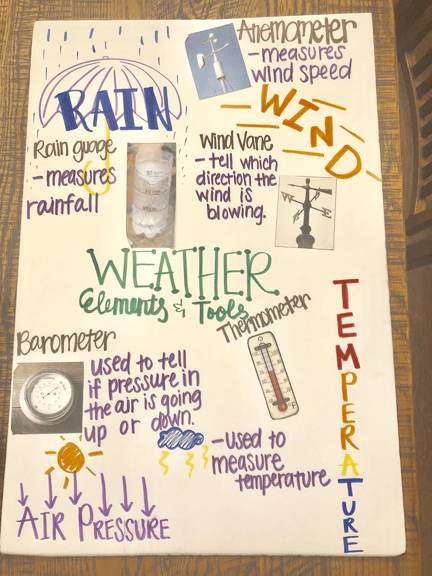 Anemometer
-measures
wind speed
RAIN
WIND
Rain guage
-measures
rainfall
Wind Vane
-tell which
direction the
wind is
blowing.
WEATHER
Elements & Tools
Thermometer
TEMPERATURE
Barometer
used to tell
if pressure in
the air is going
up or down.
-used to
measure
temperature
AIR PRESSURE